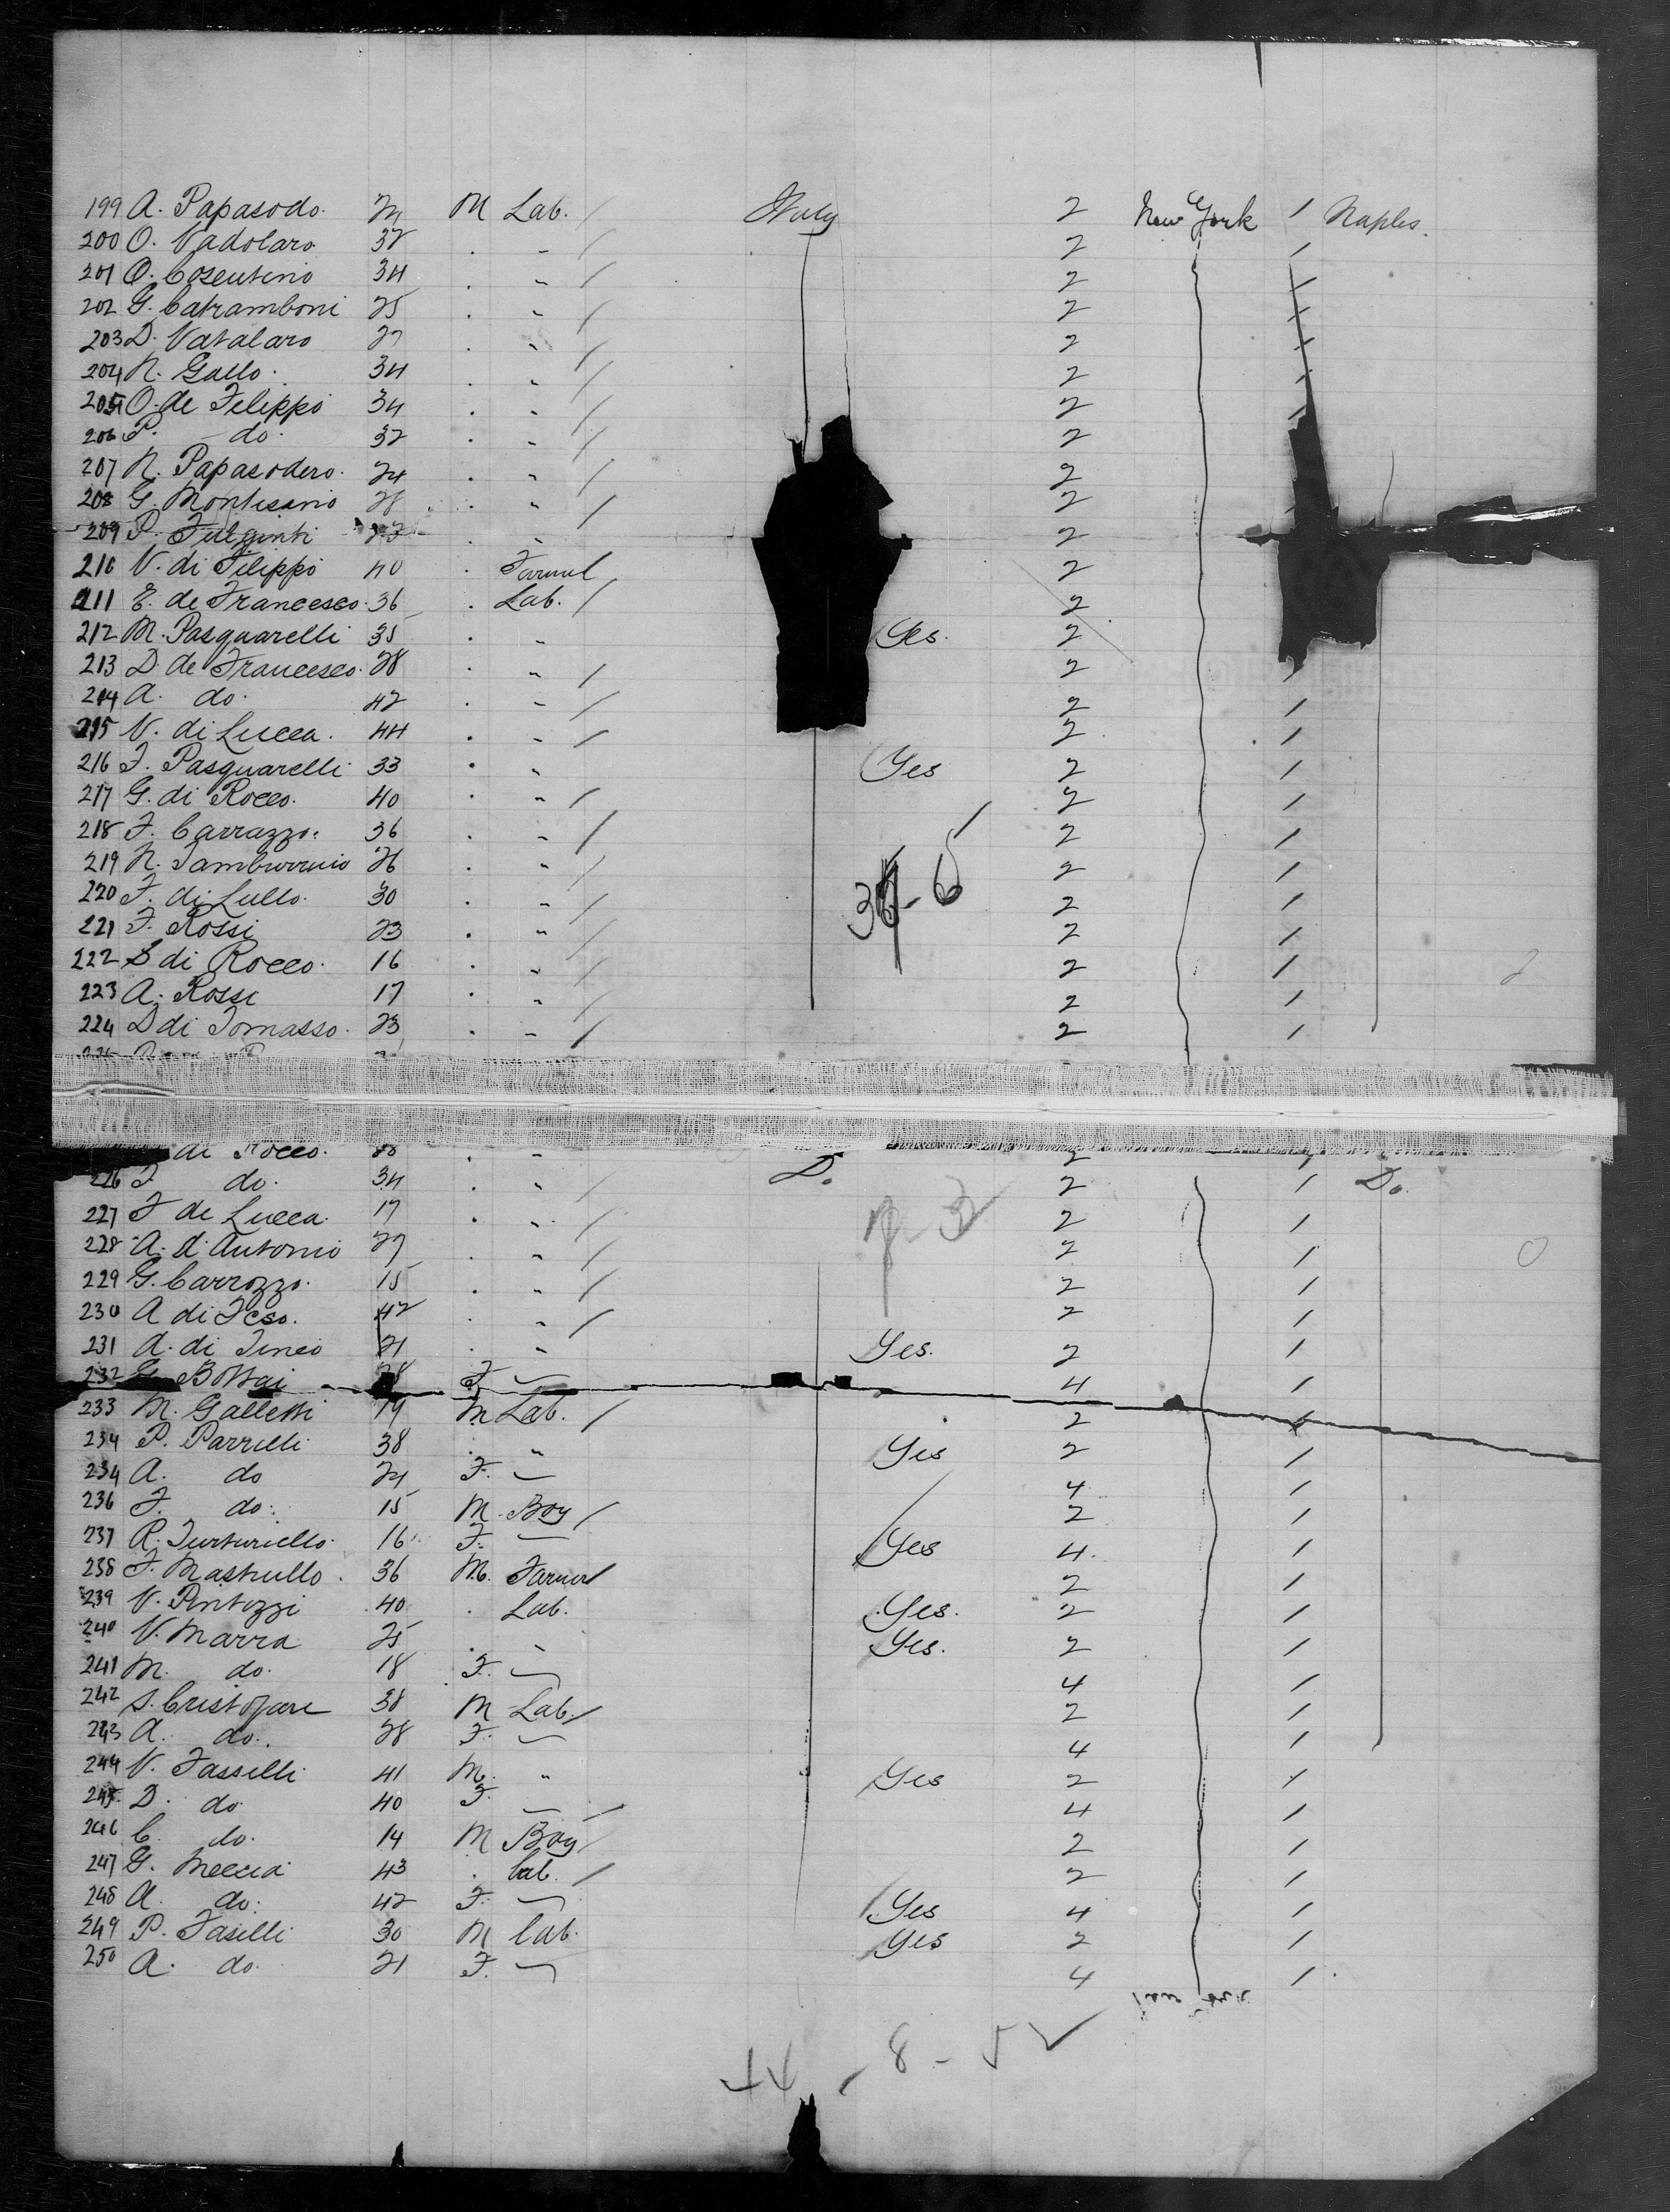 199 A. Papasodo. 24 M Lab. / Italy 2 New York / Naples.
200 O. Vadolaro 32 . " / 2 /
201 O. Cosentino 34 . " / 2 /
202 G. Catramboni 25 . " / 2 /
203 D. Vatalaro 27 . " / 2 /
204 N. Gallo. 34 . " / 2 /
205 O. de Filippo 34 . " / 2 /
206 P. do. 32 . " / 2
207 N. Papasodero. 24 . " / 2
208 G. Montesano 28 . " / 2
209 P. Fulginiti . " 2
210 V. di Filippo 40 . 2
211 E. de Francesco. 36 . Lab. / 2
212 M. Pasquarelli 35 . " Yes. 2
213 D. de Francesco. 28 . " / 2 /
214 A. do. 42 . " / 2 /
215 V. di Lucca. 44 . " / 2 /
216 F. Pasquarelli 33 . " Yes 2 /
217 G. di Rocco. 40 . " / 2 /
218 F. Carrazzo. 36 . " / 2 /
219 N. 26 . " / 2 /
220 F. di Lullo. 30 . " / 2 /
221 F. Rossi 23 . " / 2 /
222 S di Rocco. 16 . " / 2 /
223 A. Rossi 17 . " / 2 /
224 D di Tomasso. 23 . " / 2 /
di Rocco. . " 2 /
226 F do. 34 . " / Do. 2 / Do.
227 F de Lucca. 17 . " / 2 /
228 A. d'Antonio 27 . " / 2 /
229 G. Carrozzo. 15 . " / 2 /
230 A di 42 . " / 2 /
231 A. di 21 . " Yes. 2 /
232 G. Bottai 28 F — 4 /
233 M. Galletti 19 M Lab. / 2 /
234 P. Parrilli 38 . " Yes 2 /
234 A. do 24 F. — 4 /
236 F. do. 15 M. Boy / 2 /
237 R. Turturiello. 16 F. — Yes 4. /
238 F. Mastrullo. 36 M. Farmer 2 /
239 V. Pintozzi 40 . Lab. Yes. 2 /
240 V. Marra 25 . " Yes. 2 /
241 M. do. 18 F. — 4 /
242 S. Cristofare 38 M Lab. / 2 /
243 A. do. 28 F. — 4 /
244 V. Fasselli 41 M. " Yes 2 /
245. D. do. 40 F — / 4 /
246 C. do. 14 M Boy / 2 /
247 G. Meccia 43 . Lab. / 2 /
248 A. do. 42 F. — Yes 4 /
249 P. Faselli 30 M Lab. Yes 2 /
250 A. do. 21 F. — 4 /